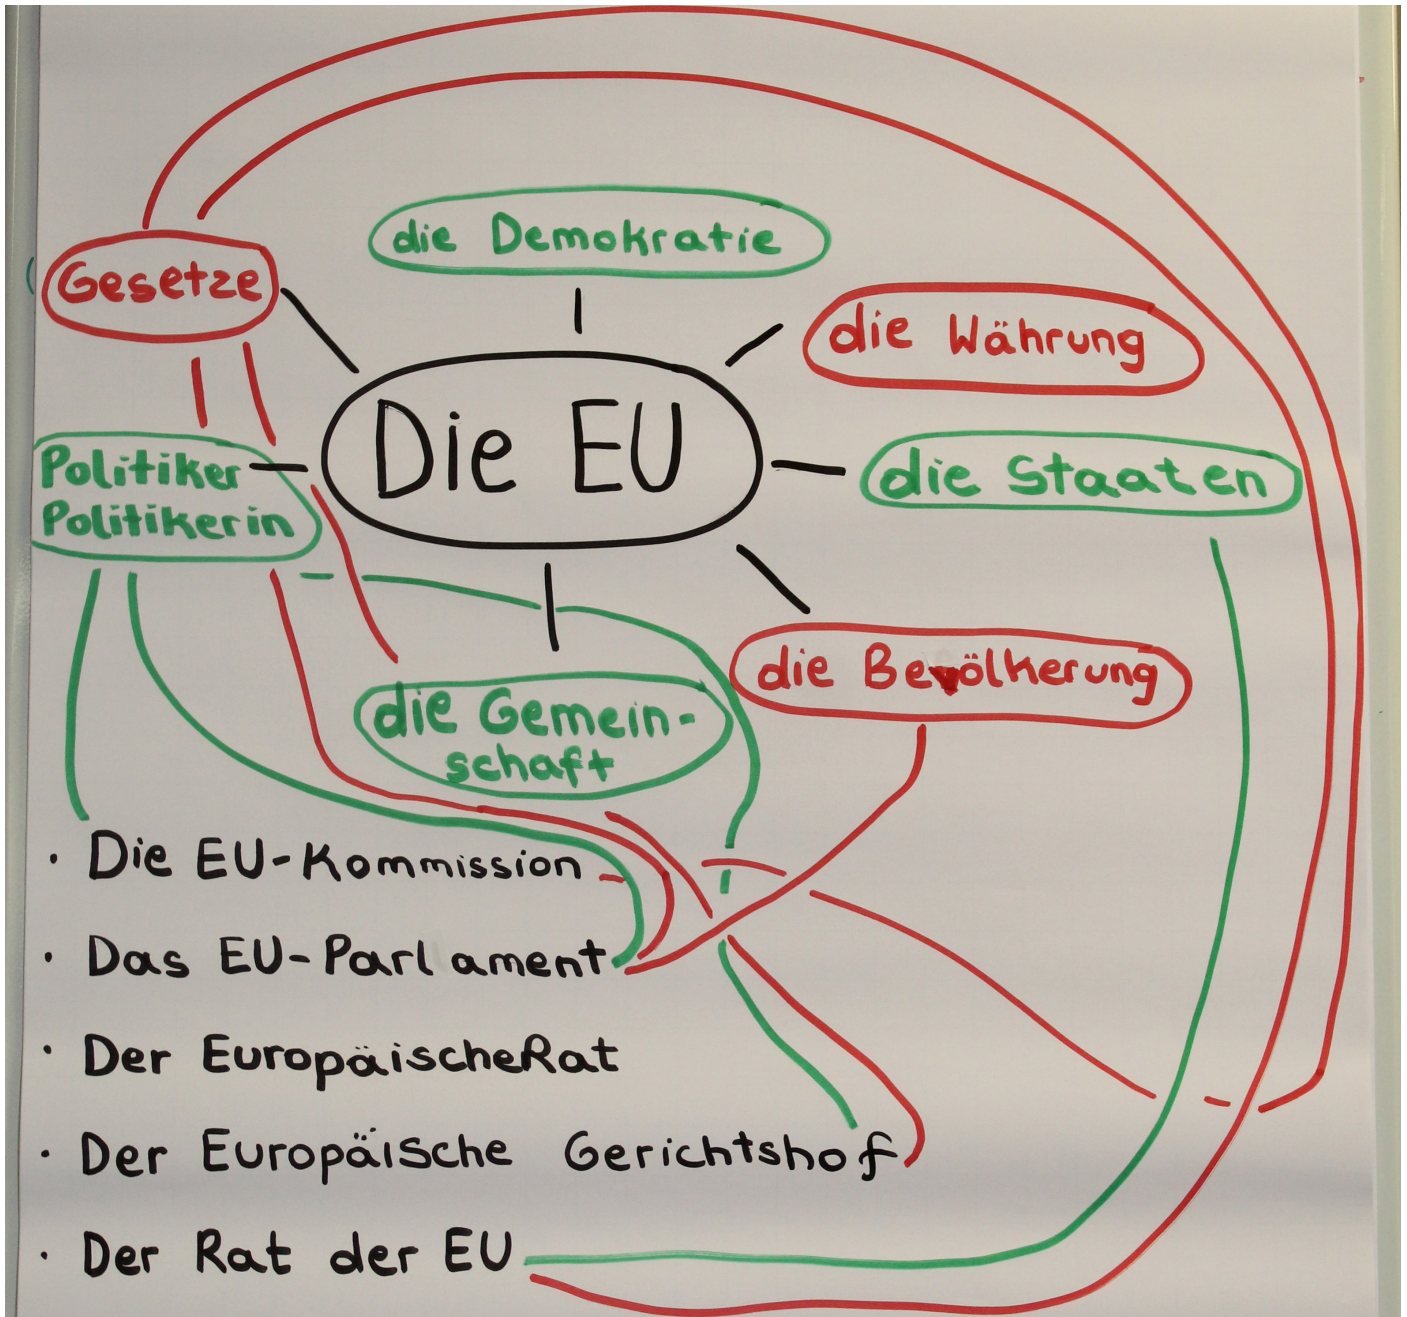 die Demokratie
Gesetze
die Währung
Die EU
Politiker
Politikerin
die Staaten
die Bevölkerung
die Gemein-
schaft
· Die EU-Kommission
· Das EU-Parlament
· Der EuropäischeRat
· Der Europäische Gerichtshof
· Der Rat der EU